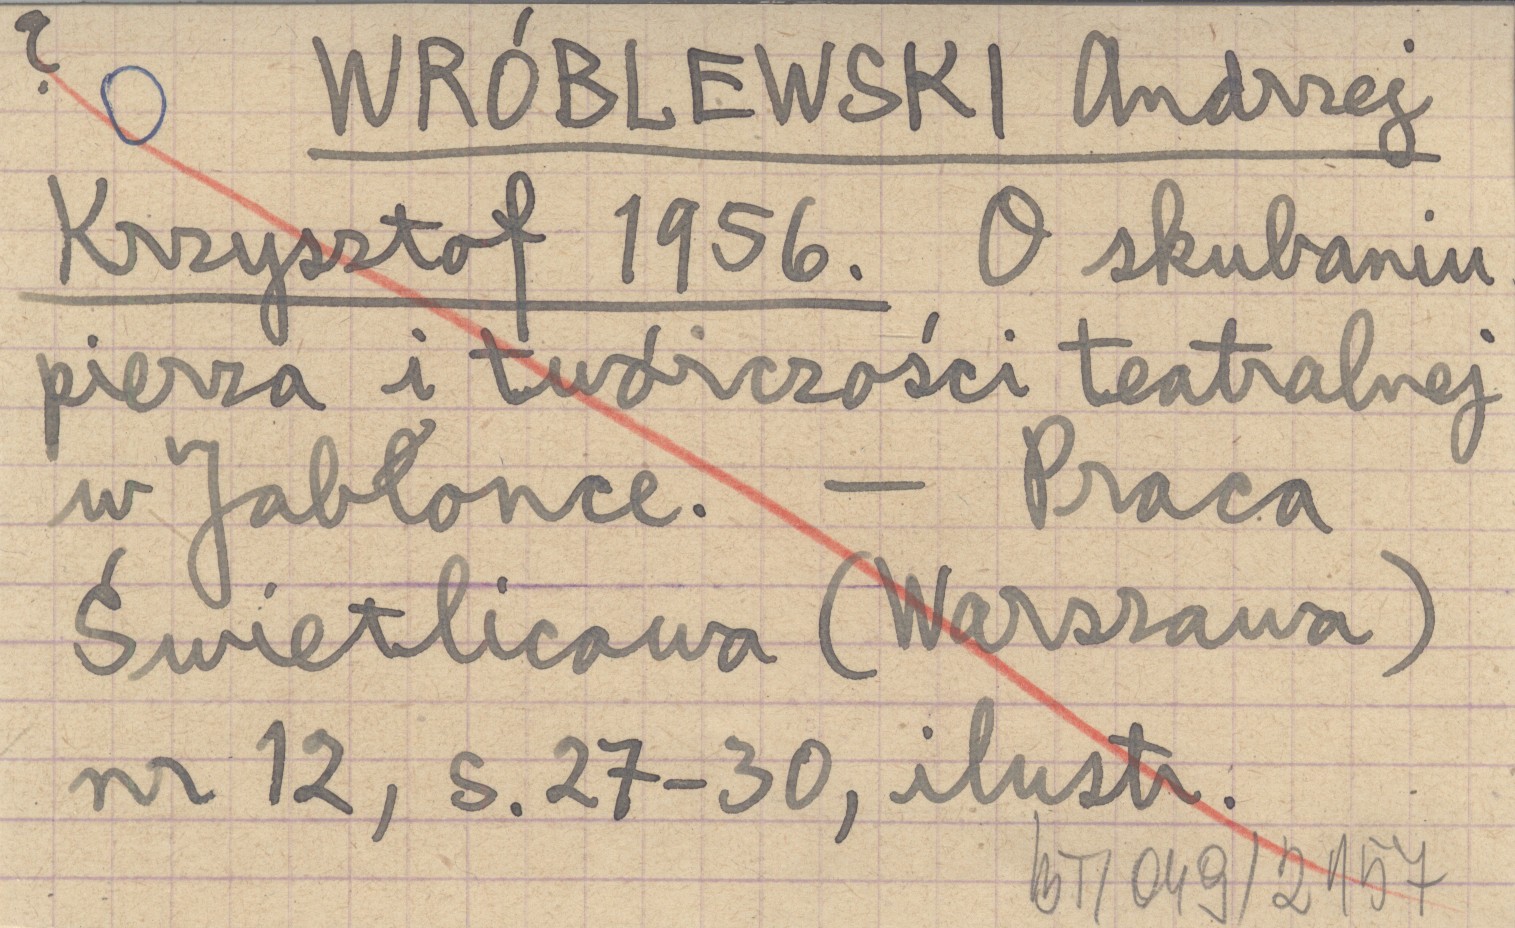 ?
O
WRÓBLEWSKI Andrzej
Krzysztof 1956. O skubaniu
pierza i twórczości teatralnej
w Jabłonce. — Praca
Świetlicowa (Warszawa)
nr 12, s. 27-30, ilustr.
BT/049/2157